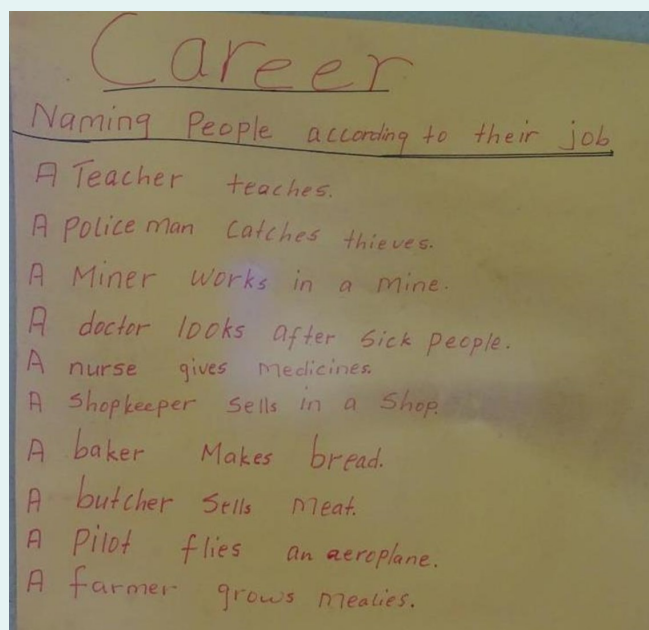 Career
Naming People according to their job
A Teacher teaches.
A Police man catches thieves.
A Miner works in a mine.
A doctor looks after sick people.
A nurse gives medicines.
A Shopkeeper sells in a Shop.
A baker Makes bread.
A butcher sells meat.
A Pilot flies an aeroplane.
A farmer grows mealies.